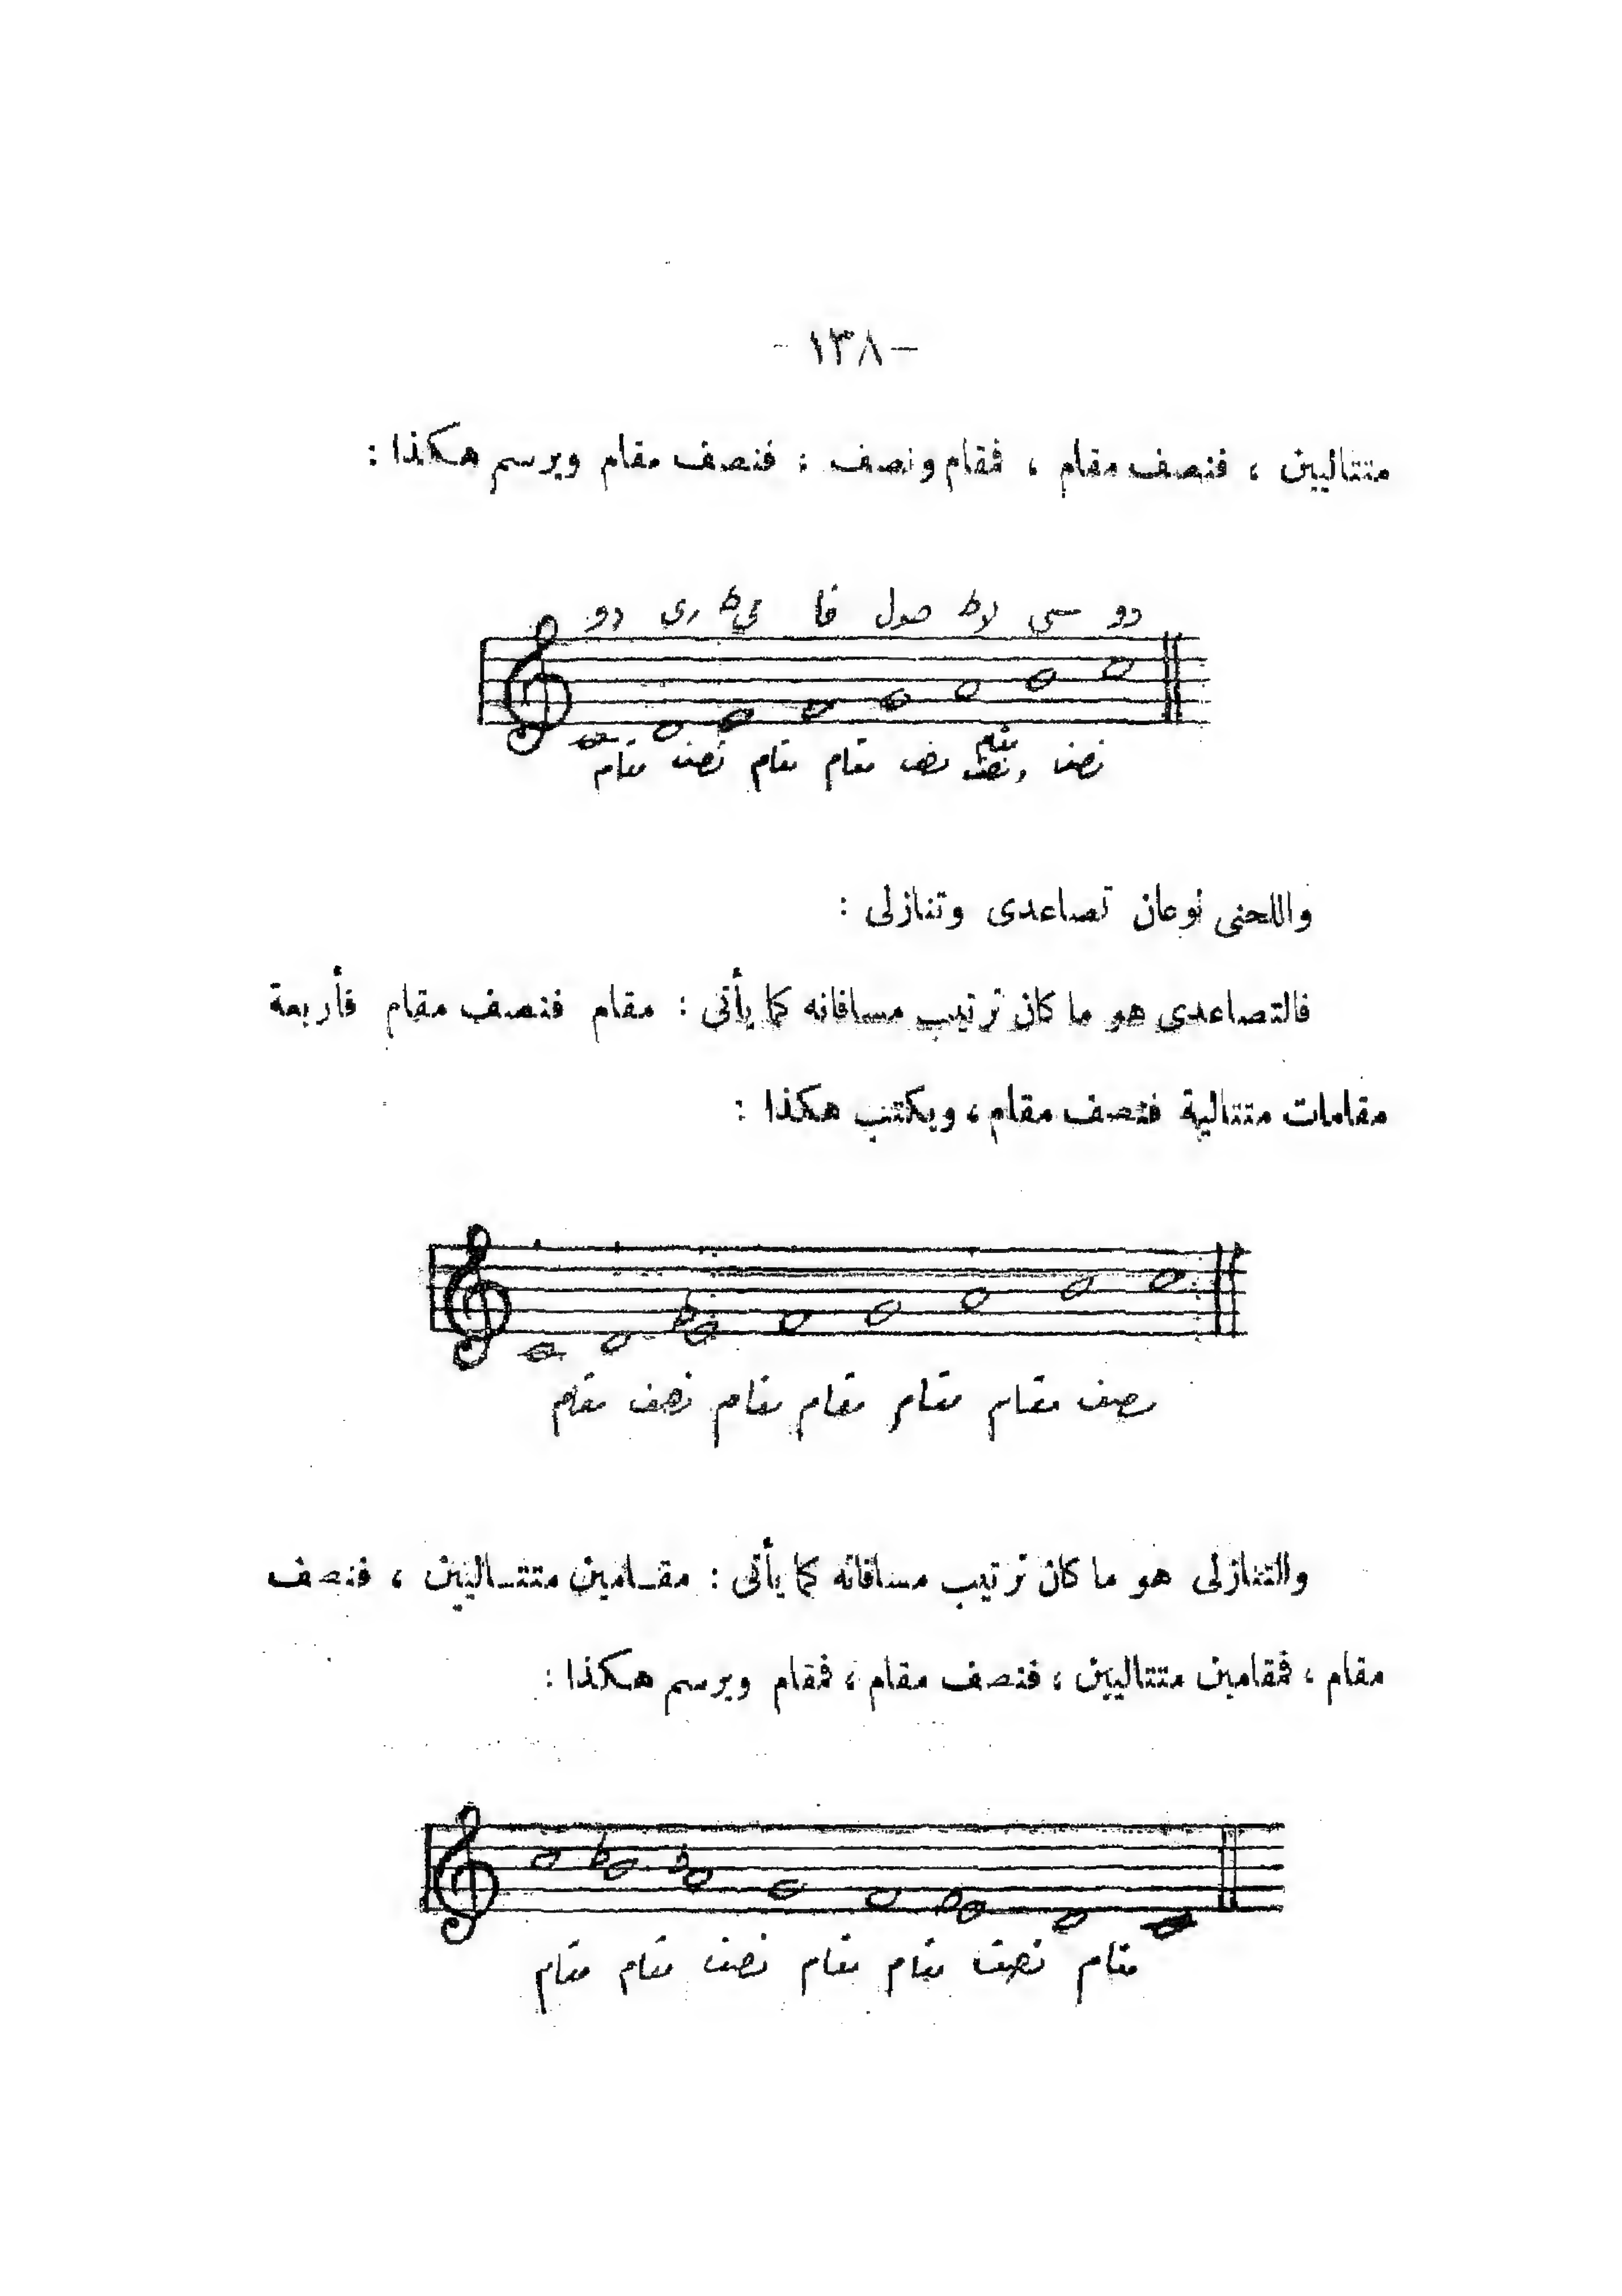 – ١٣٨ –
متتاليين ، فنصف مقام ، فمقام ونصف ، فنصف مقام ويرسم هكذا :
دو رى مى b فا صول لا b سى دو
مقام نصف مقام مقام نصف مقام ونصف نصف
واللحنى نوعان تصاعدى وتنازلى :
فالتصاعدى هو ما كان ترتيب مسافاته كما يأتى : مقام فنصف مقام فأربعة
مقامات متتالية فنصف مقام ، ويكتب هكذا :
مقام نصف مقام مقام مقام مقام نصف
والتنازلى هو ما كان ترتيب مسافاته كما يأتى : مقامين متتاليين ، فنصف
مقام ، فمقامين متتاليين ، فنصف مقام ، فمقام ويرسم هكذا :
مقام مقام نصف مقام مقام نصف مقام